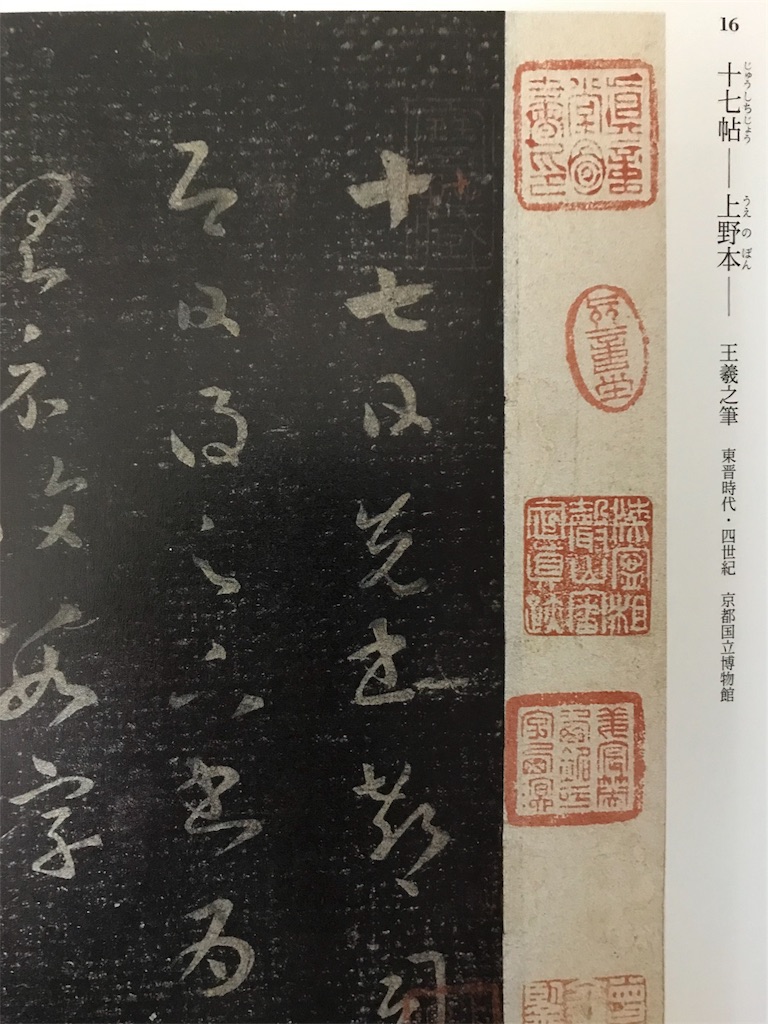 16
じゅうしちじょう うえのぼん
十七帖―上野本― 王羲之筆 東晋時代・四世紀 京都国立博物館
十七日先書郗司
即日得足下書為
具示復數字